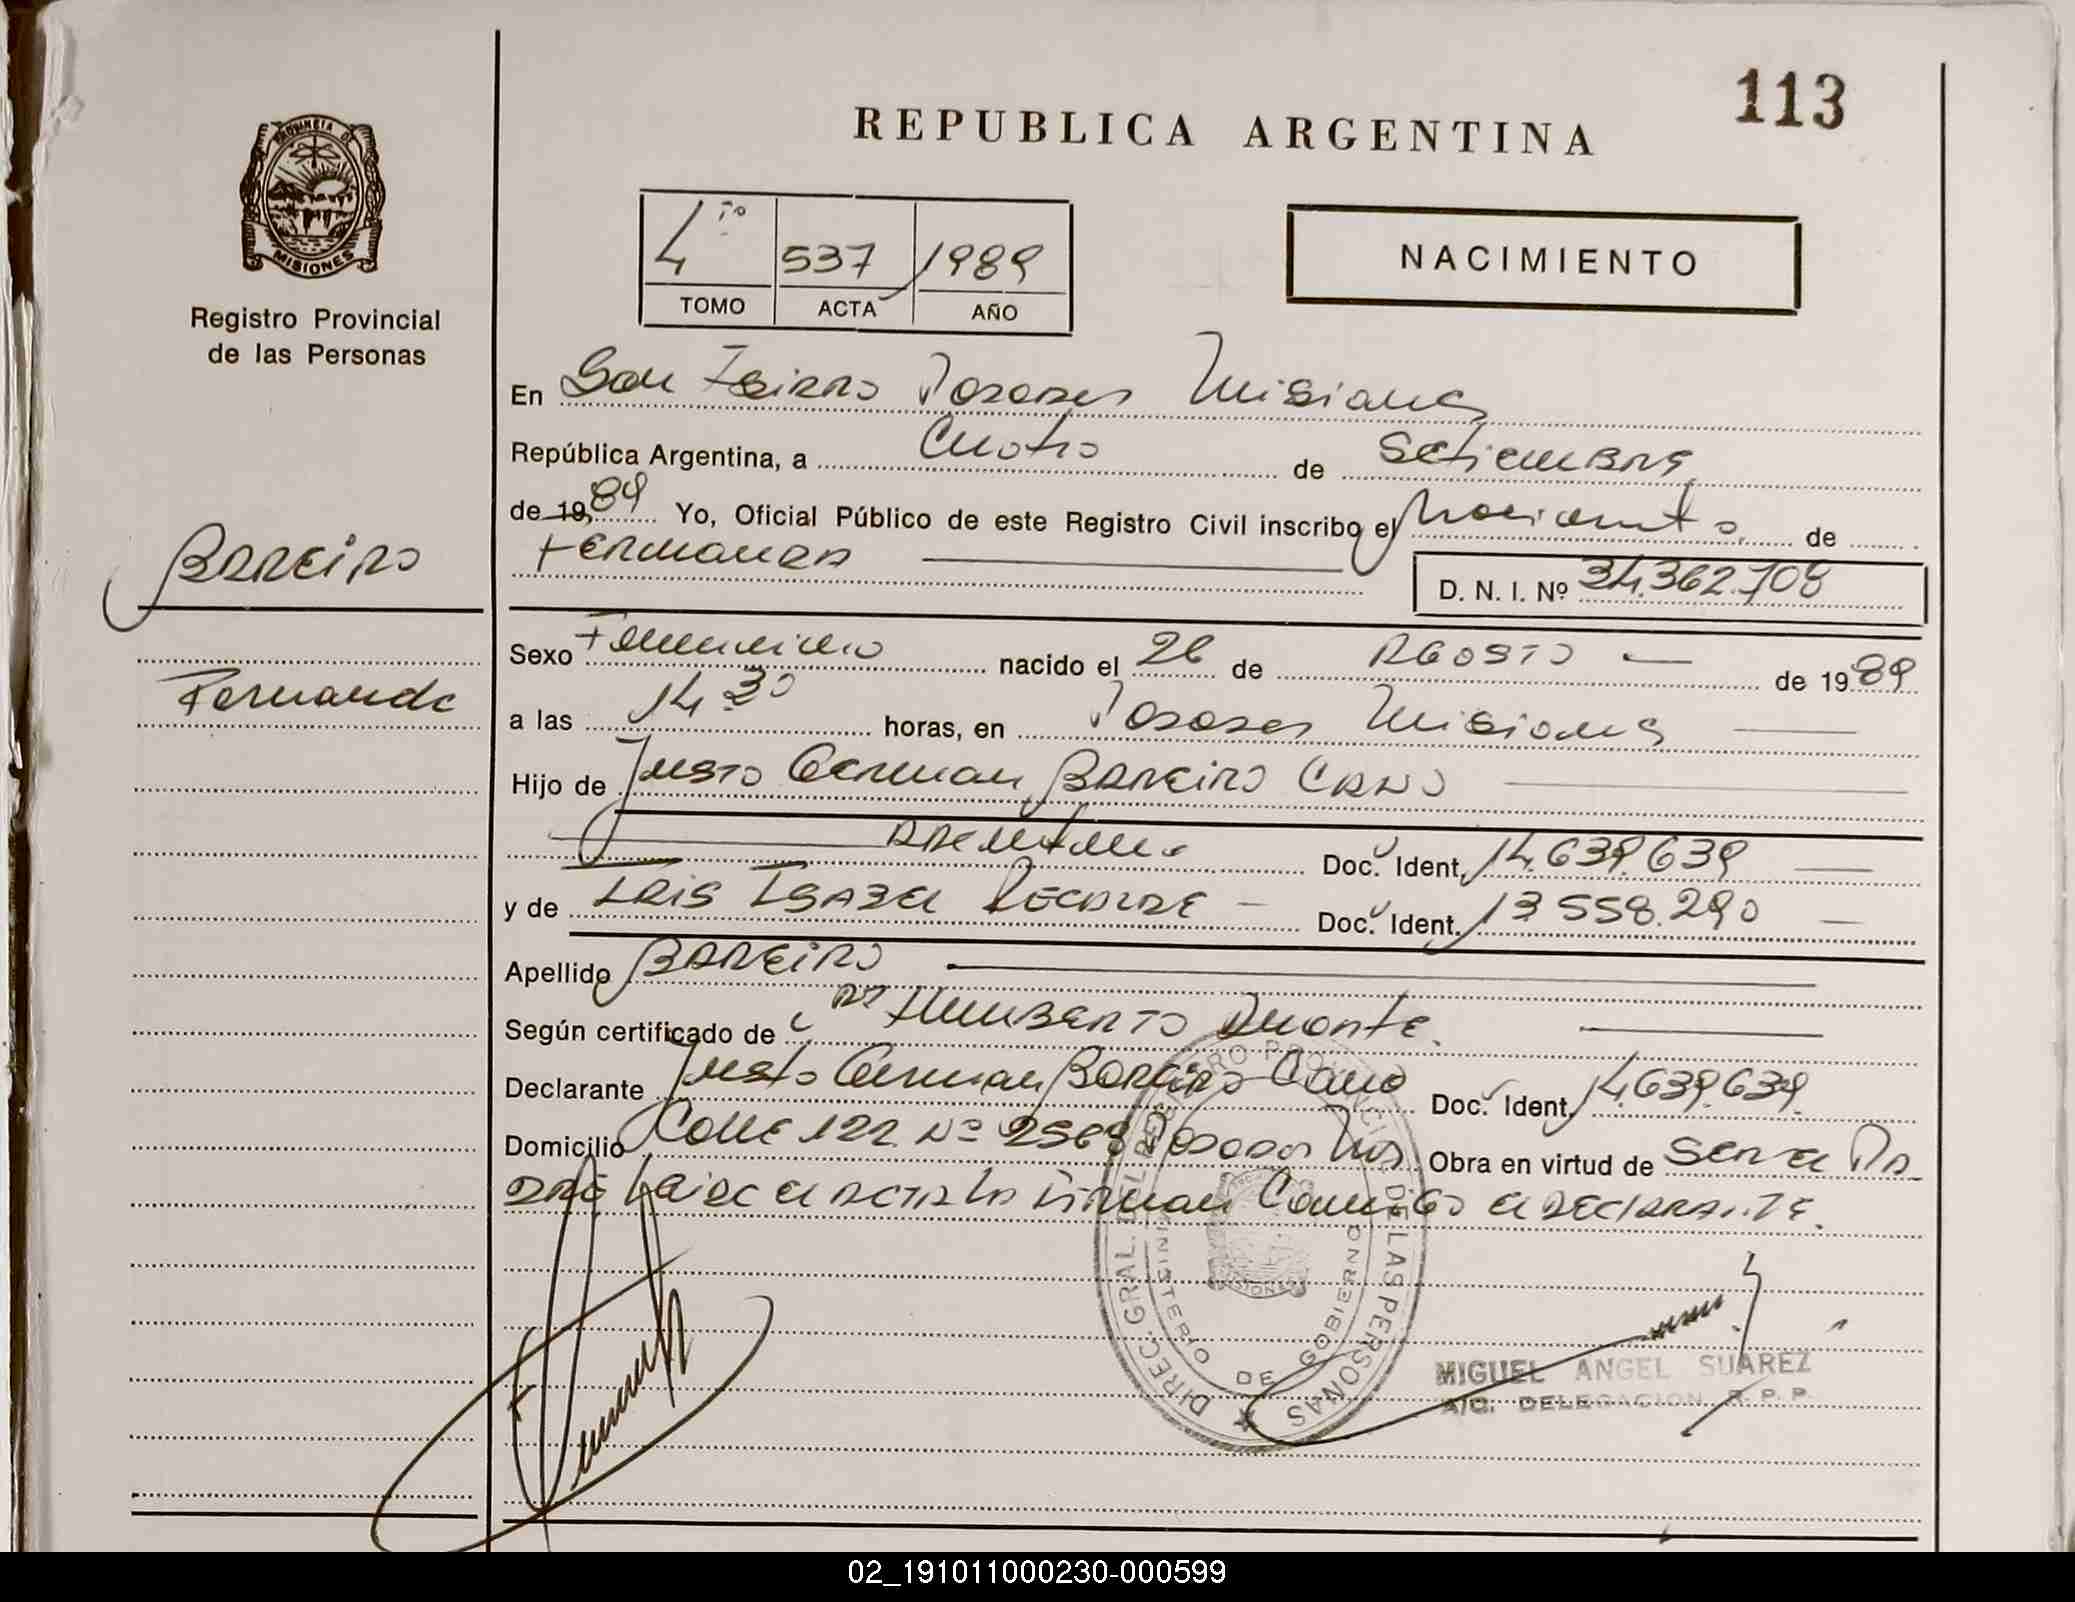 113
REPUBLICA ARGENTINA
PROVINCIA DE
MISIONES
Registro Provincial
de las Personas
4to 537 1989
TOMO ACTA AÑO
NACIMIENTO
En San Isidro Posadas Misiones
República Argentina, a Cuatro de Setiembre
de 1989 Yo, Oficial Público de este Registro Civil inscribo el Nacimiento de
Fernanda
D. N. I. Nº 34.362.708
Barreiro
Fernanda
Sexo Femenino nacido el 26 de Agosto de 1989
a las 14 30 horas, en Posadas Misiones
Hijo de Justo German Bareiro Cano
Argentino Doc. Ident. 14.639.639
y de Iris Isabel Recalde Doc. Ident. 13 558.290
Apellido Bareiro
Según certificado de Dr Humberto Duarte.
Declarante Justo German Bareiro Cano Doc. Ident. 14.639.639.
Domicilio Calle 122 Nº 2568 Posadas Mis Obra en virtud de Ser el Pa
dre Leida el acta la firman Conmigo el Declarante.
DIREC. GRAL. DEL REGISTRO PROVINCIAL DE LAS PERSONAS
MINISTERIO DE GOBIERNO
MISIONES
MIGUEL ANGEL SUAREZ
A/C. DELEGACION R. P. P.
02_191011000230-000599